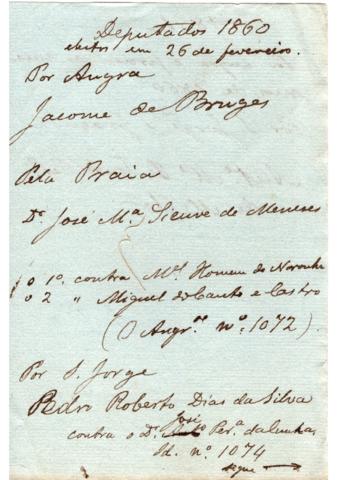 Deputados 1860
eleitos em 26 de fevereiro.
Por Angra
Jacome de Bruges
Pela Praia
Dr. José Mª Sieuve de Meneses
o 1º contra Mel. Homem de Noronha
o 2 " Miguel do Canto e Castro
(O Angr.ense nº 1072).
Por S. Jorge
Pedro Roberto Dias da Silva
contra o Dr. José Per.ª da Cunha,
Id. nº 1074
segue